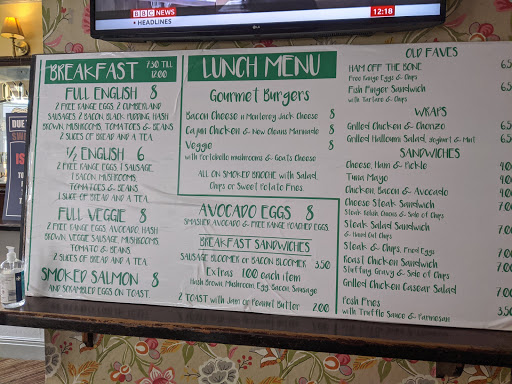 BBC NEWS
HEADLINES
12:18
BREAKFAST 7.30 TILL 12.00
FULL ENGLISH 8
2 FREE RANGE EGGS, 2 CUMBERLAND
SAUSAGES, 2 BACON, BLACK PUDDING, HASH
BROWN, MUSHROOMS, TOMATOES & BEANS
2 SLICES OF BREAD AND A TEA
1/2 ENGLISH 6
2 FREE RANGE EGGS, 1 SAUSAGE,
1 BACON, MUSHROOMS,
TOMATOES & BEANS
1 SLICE OF BREAD AND A TEA
FULL VEGGIE 8
2 FREE RANGE EGGS, AVOCADO, HASH
BROWN, VEGGIE SAUSAGE, MUSHROOMS,
TOMATO & BEANS
2 SLICES OF BREAD AND A TEA
SMOKED SALMON 8
AND SCRAMBLED EGGS ON TOAST
LUNCH MENU
Gourmet Burgers
Bacon Cheese w Monterey Jack Cheese 8
Cajun Chicken & New Orleans Marinade 8
Veggie 8
with Portobello mushrooms & Goats Cheese
ALL ON SMOKED BRIOCHE with Salad,
Chips or Sweet Potato Fries
AVOCADO EGGS 8
SMASHED AVOCADO & FREE RANGE POACHED EGGS
BREAKFAST SANDWICHES
SAUSAGE BLOOMER or BACON BLOOMER 3.50
Extras 1.00 each item
Hash Brown, Mushroom, Egg, Bacon, Sausage
2 TOAST with Jam or Peanut Butter 2.00
OLD FAVES
HAM OFF THE BONE 6.5
Free Range Eggs & Chips
Fish Finger Sandwich 6.5
with Tartare & Chips
WRAPS
Grilled Chicken & Chorizo 6.5
Grilled Halloumi Salad, Yoghurt & Mint 6.5
SANDWICHES
Cheese, Ham & Pickle 4.0
Tuna Mayo 4.0
Chicken, Bacon & Avocado 4.0
Cheese Steak Sandwich 7.0
Steak, Onions & Side of Chips
Steak Salad Sandwich 7.0
& Hand Cut Chips
Steak & Chips, Fried Eggs 7.0
Roast Chicken Sandwich 7.0
Stuffing, Gravy & Side of Chips
Grilled Chicken Caesar Salad 7.0
Posh Fries 3.50
with Truffle Sauce & Parmesan